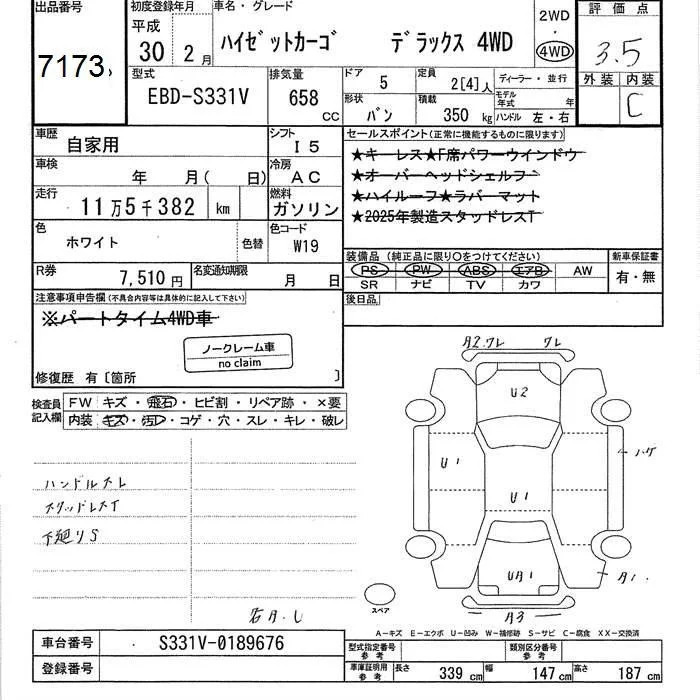 出品番号 初度登録年月 車名・グレード 2WD 評価点
7173 平成 30 2月 ハイゼットカーゴ デラックス 4WD 4WD 3.5
型式 排気量 ドア 5 定員 2[4]人 ディーラー・並行 外装 内装
EBD-S331V 658 CC 形状 バン 積載 350 kg モデル年式 年 C
ハンドル 左・右
車歴 自家用 シフト I5 セールスポイント(正常に機能するものに限ります)
★キーレス★F席パワーウインドウ
車検 年 月( 日) 冷房 AC ★オーバーヘッドシェルフ
走行 11万5千382 km 燃料 ガソリン ★ハイルーフ★ラバーマット
★2025年製造スタッドレスT
色 ホワイト 色替 色コード W19
装備品(純正品に限り○をつけてください) 新車保証書
PS PW ABS エアB AW 有・無
SR ナビ TV カワ
R券 7,510円 名変通知期限 月 日
後日品
注意事項申告欄(不具合内容等は具体的に記入して下さい)
※パートタイム4WD車
ノークレーム車
no claim
修復歴 有〔箇所 〕
検査員記入欄 FW キズ・飛石・ヒビ割・リペア跡・×要
内装 キズ・汚レ・コゲ・穴・スレ・キレ・破レ
A2.ワレ ワレ
U2
U1 ハゲ
U1
UA1 A1
A3
ハンドルスレ
スタッドレスT
下廻りS
スペア
A-キズ E-エクボ U-凹み W-補修跡 S-サビ C-腐食 XX-交換済
車台番号 S331V-0189676
登録番号
型式指定番号 参考 類別区分番号 参考
車庫証明用 参考 長さ 339 cm 幅 147 cm 高さ 187 cm